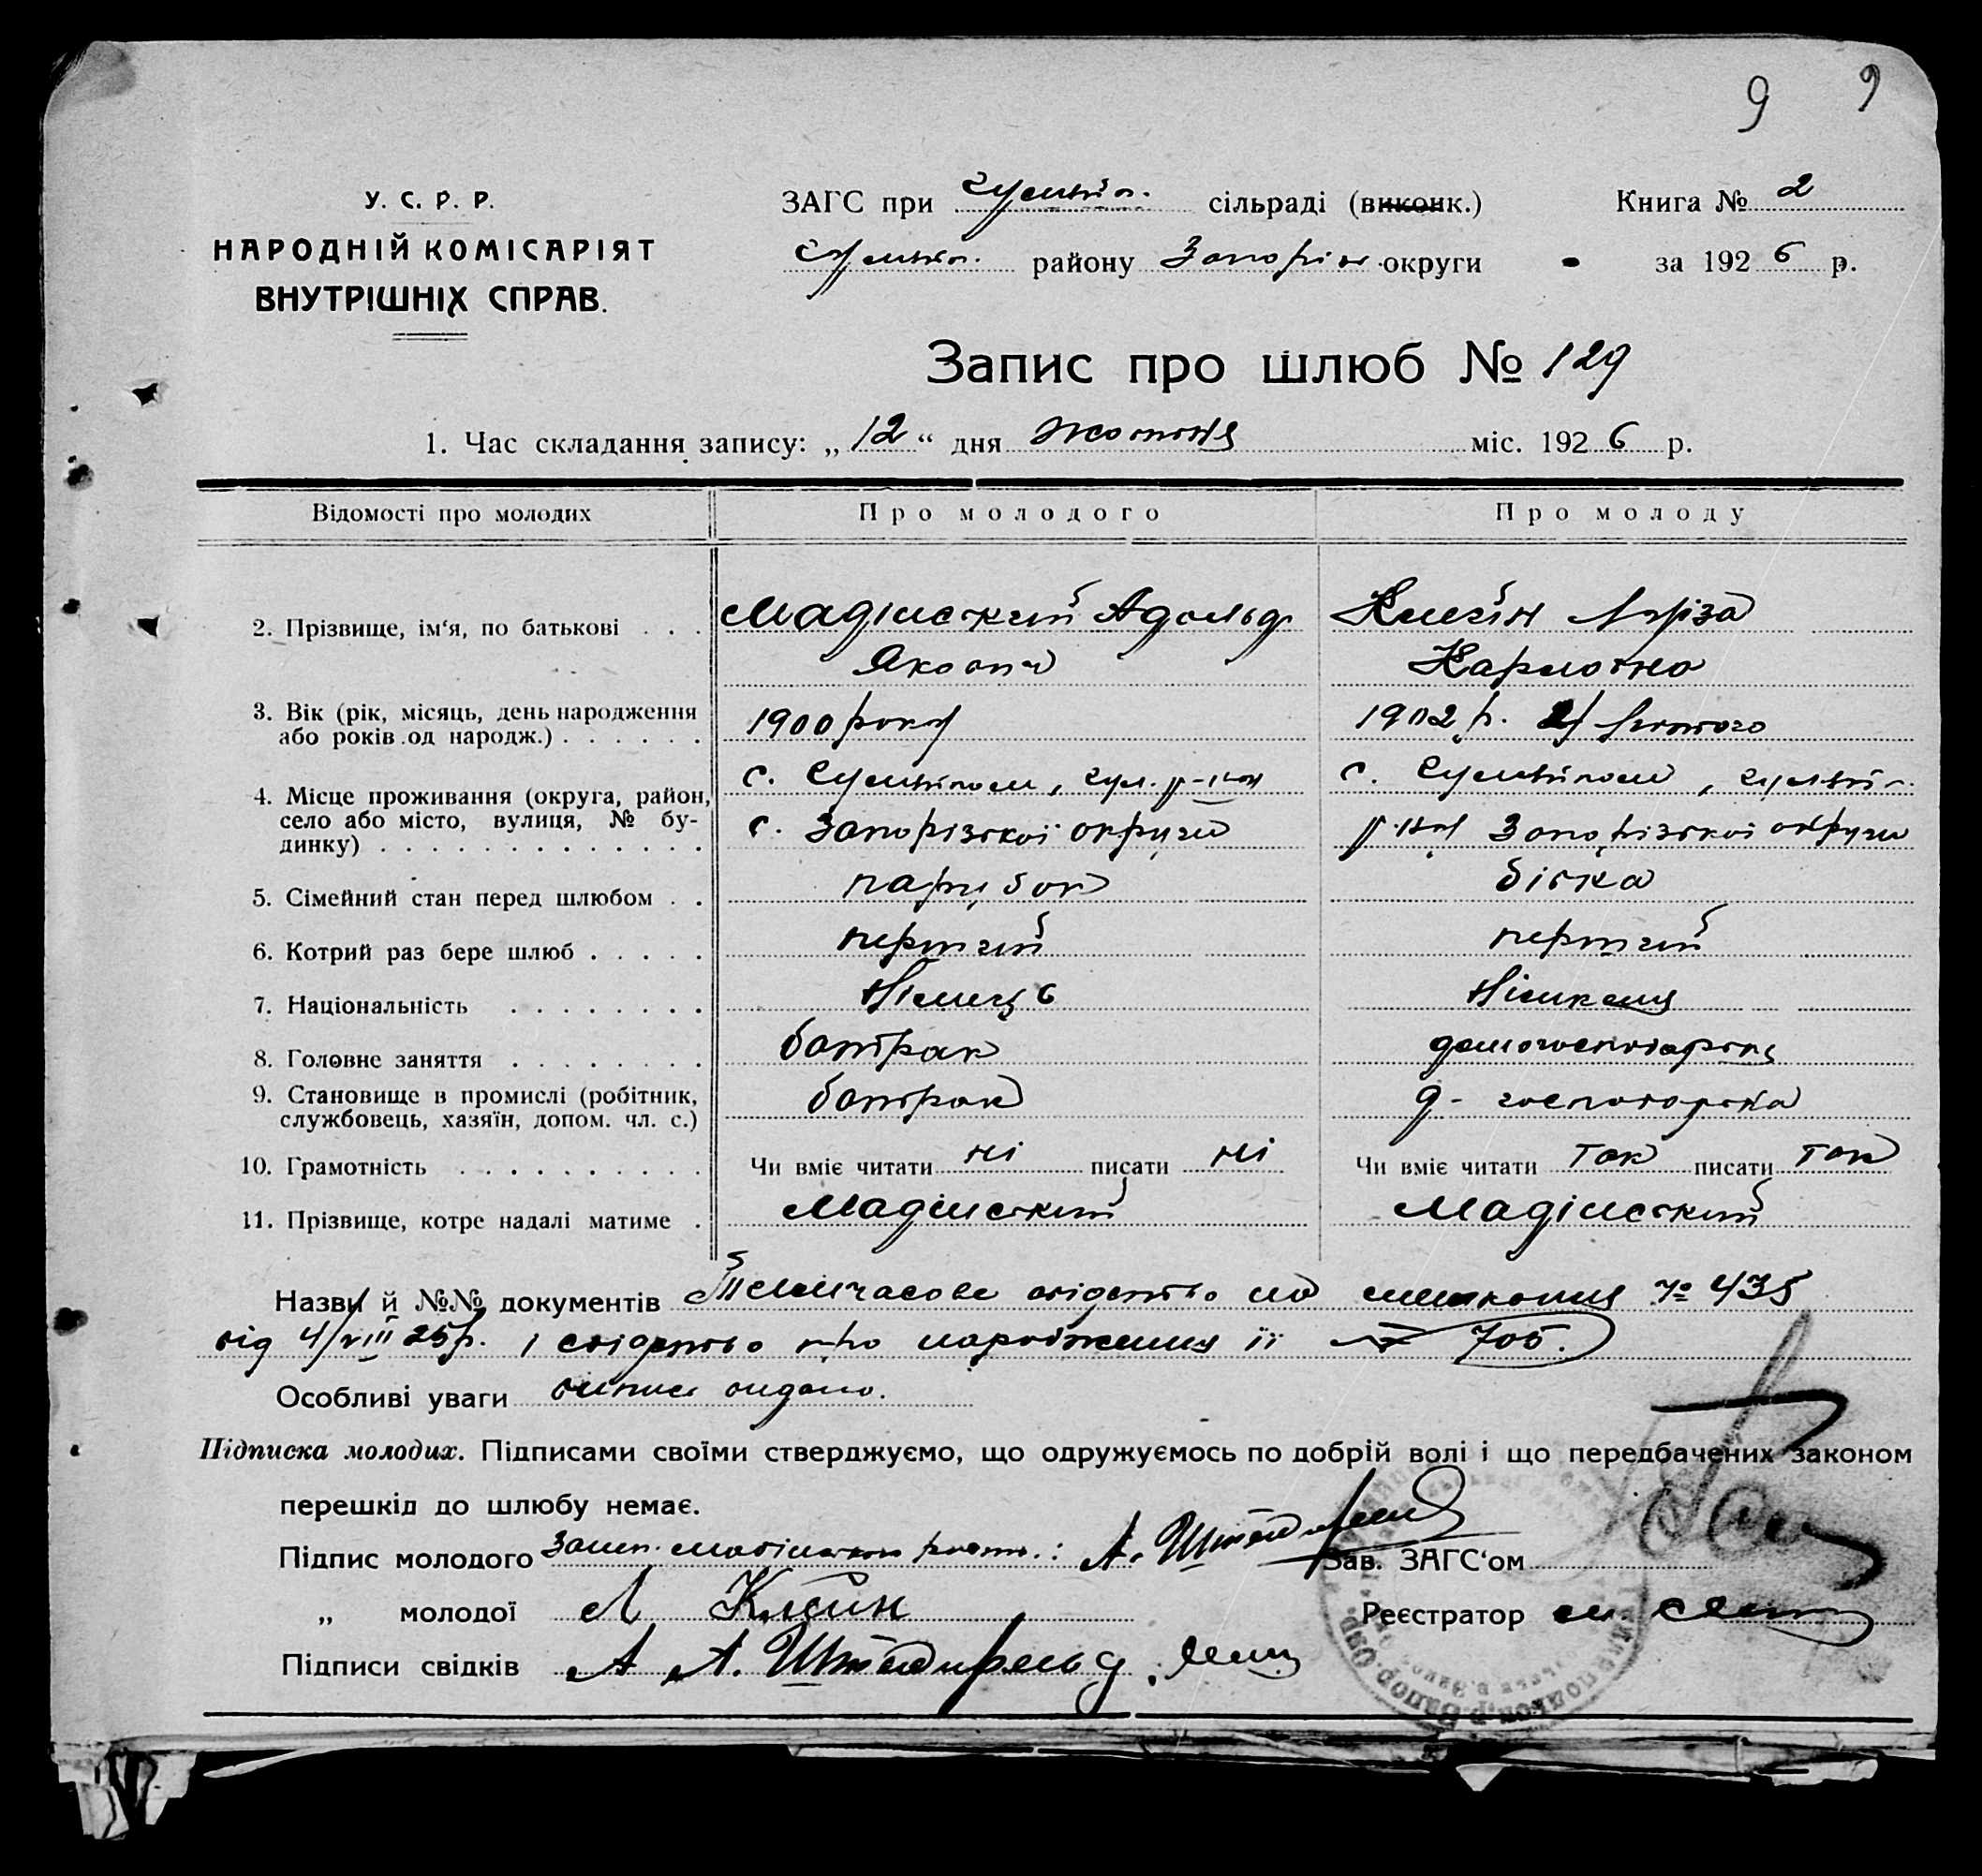 9 9
У. С. Р. Р.
НАРОДНІЙ КОМІСАРІЯТ
ВНУТРІШНІХ СПРАВ.
ЗАГС при Гуляйп. сільраді (виконк.) Книга № 2
Гуляйп. району Запоріж округи за 1926 р.
Запис про шлюб № 129
1. Час складання запису: „12“ дня жовтня міс. 1926 р.
Відомості про молодих Про молодого Про молоду
2. Прізвище, ім‘я, по батькові . . . Мадінський Адольф Клейн Луіза
Якович Карловна
3. Вік (рік, місяць, день народження 1900 року 1902 р. лютого
або років од народж.) . . . . . .
4. Місце проживання (округа, район, с. Гуляйполе, гул. р-ну с. Гуляйполе, гуляйп.
село або місто, вулиця, № бу- с. Запорізької округи р-ну Запорізької округи
динку) . . . . . . . . . . . . .
5. Сімейний стан перед шлюбом . . парубок дівка
6. Котрий раз бере шлюб . . . . . перший перший
7. Національність . . . . . . . . німець німкеня
8. Головне заняття . . . . . . . . батрак домогосподарка
9. Становище в промислі (робітник, батрак д-господарка
службовець, хазяїн, допом. чл. с.)
10. Грамотність . . . . . . . . . . Чи вміє читати ні писати ні Чи вміє читати так писати так
11. Прізвище, котре надалі матиме . Мадінський Мадінский
Назви й №№ документів Тимчасове свідоцтво на мешкання № 435
від 4/VIII 25 р. і свідоцтво про народження її № 705.
Особливі уваги виписи видано.
Підписка молодих. Підписами своїми стверджуємо, що одружуємось по добрій волі і що передбачених законом
перешкід до шлюбу немає.
Підпис молодого : А. Зав. ЗАГС‘ом
„ молодої Л Клейн Реєстратор
Підписи свідків А А.